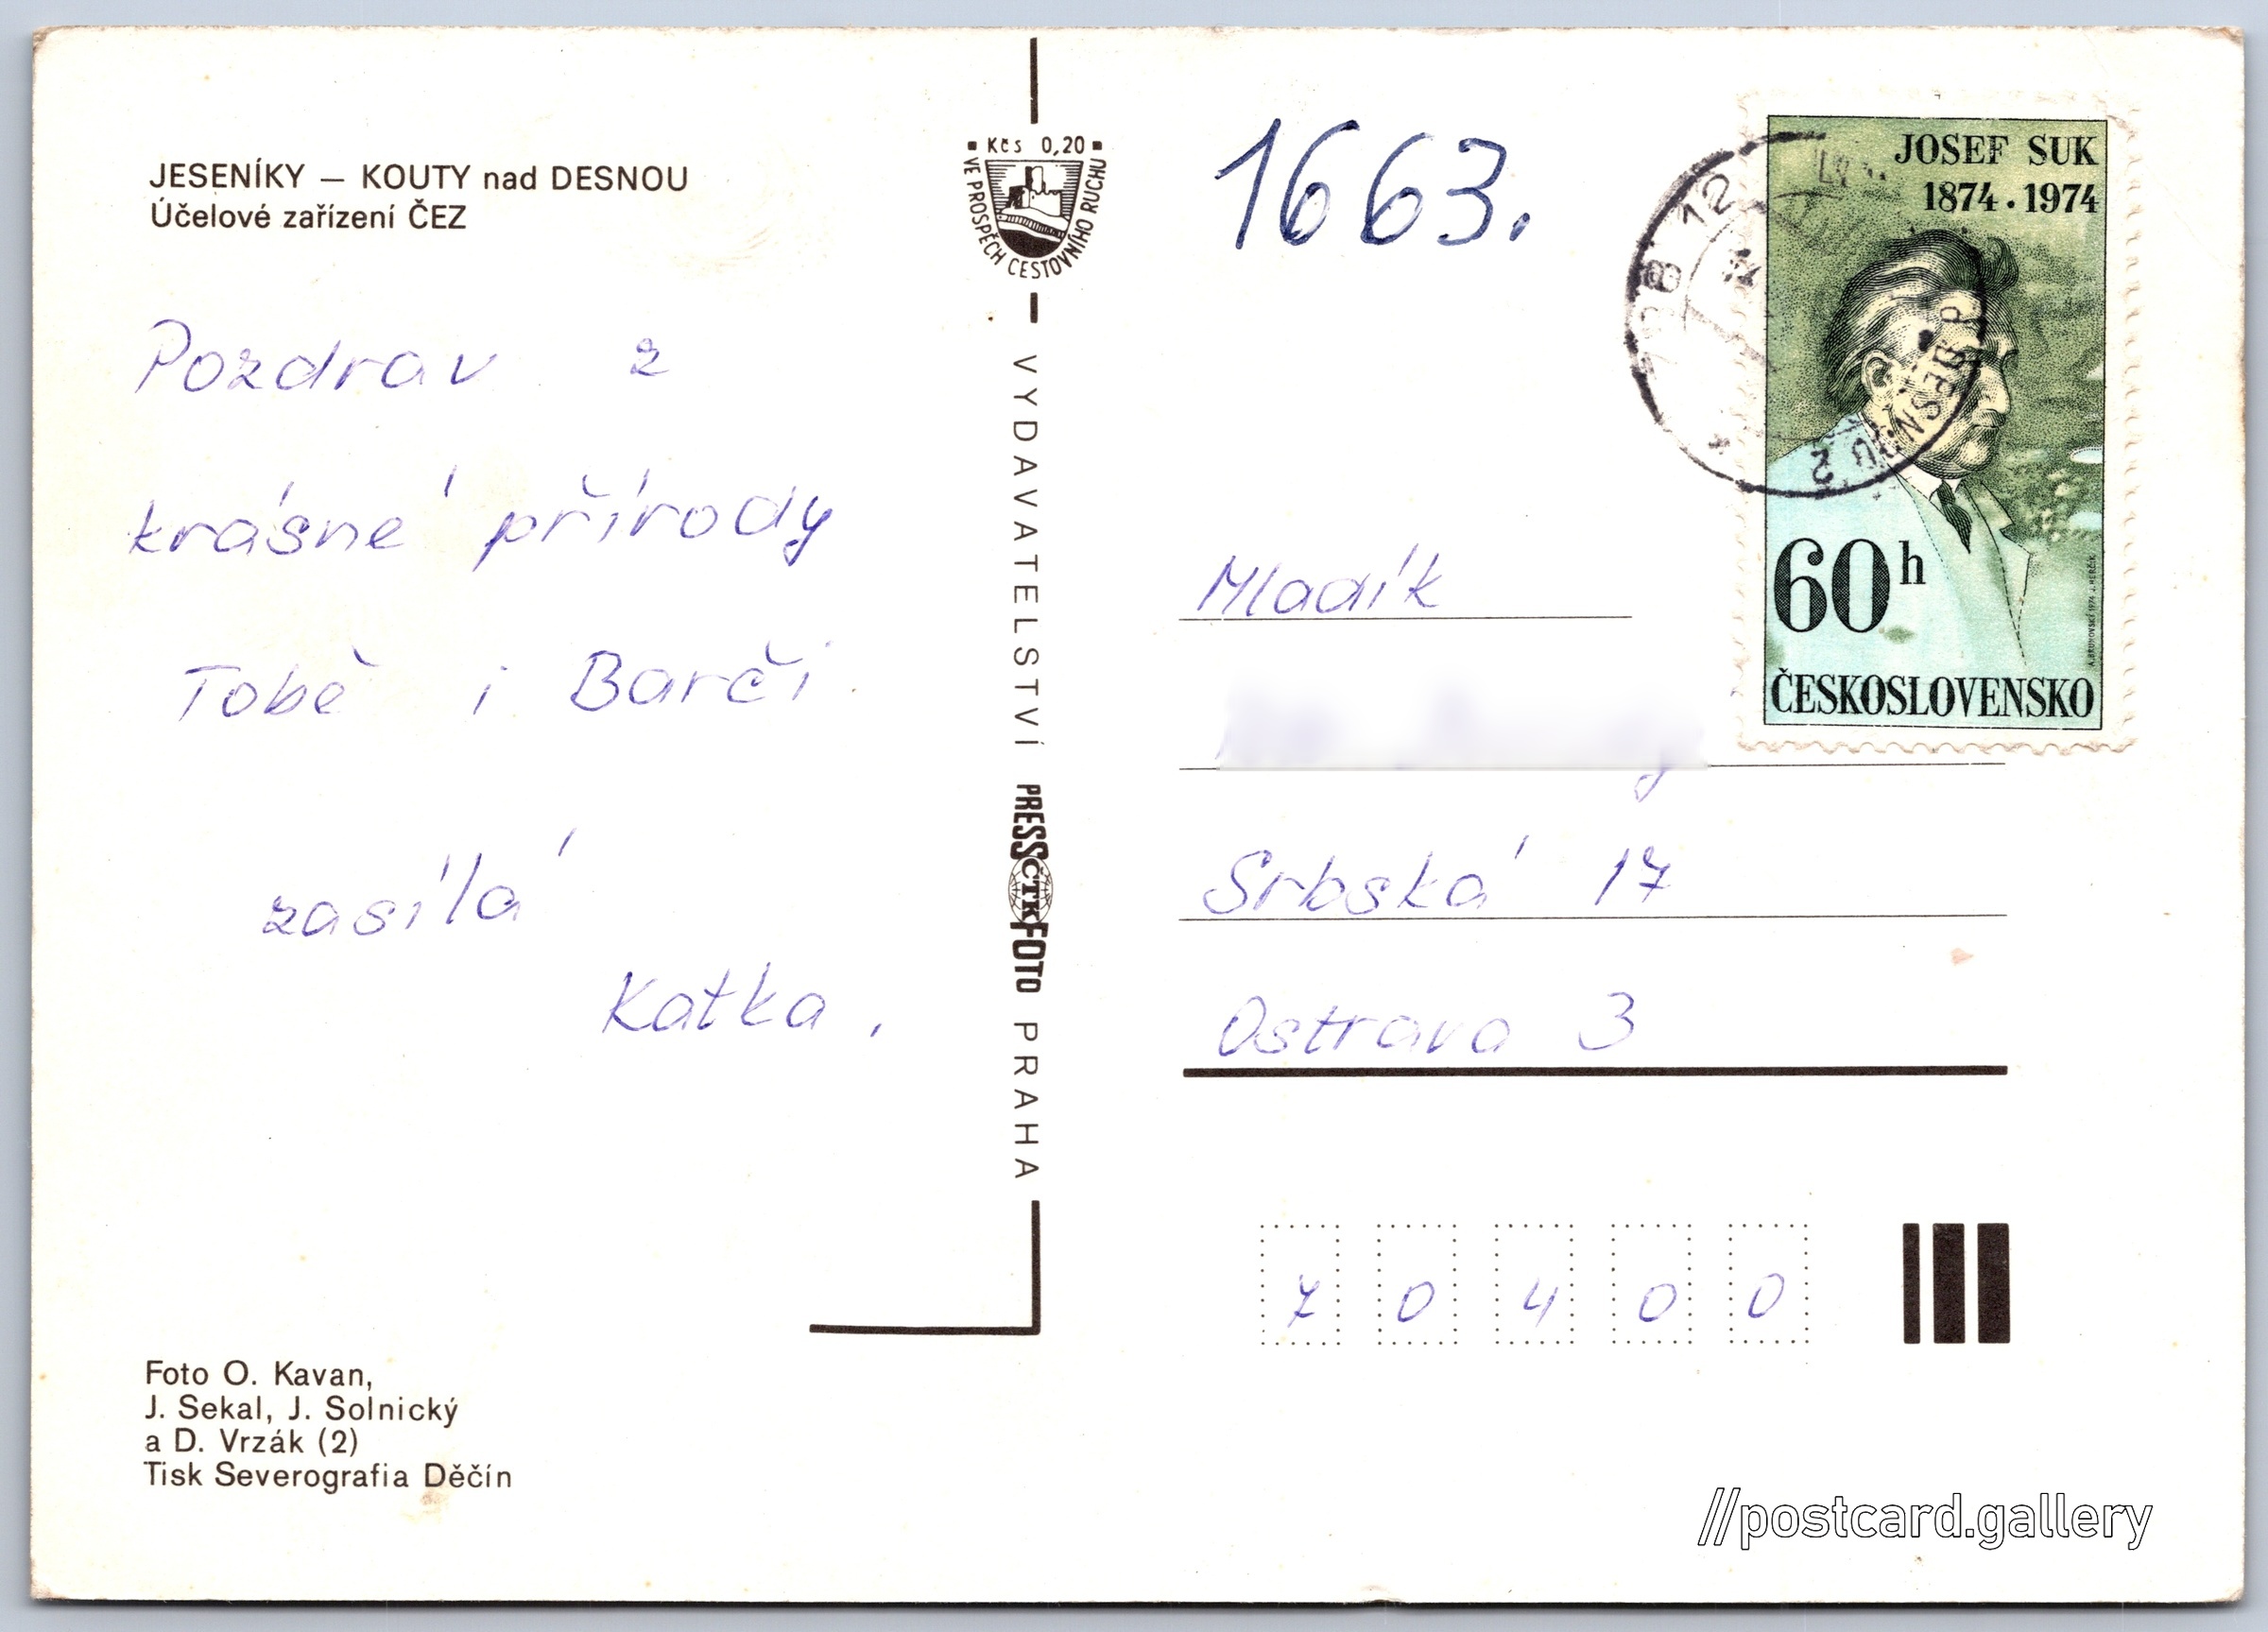 JESENÍKY — KOUTY nad DESNOU
Účelové zařízení ČEZ
Pozdrav z
krásné přírody
Tobě i Barči
zasílá
Katka.
Foto O. Kavan,
J. Sekal, J. Solnický
a D. Vrzák (2)
Tisk Severografia Děčín
Kčs 0,20
VE PROSPĚCH CESTOVNÍHO RUCHU
VYDAVATELSTVÍ PRESSFOTO PRAHA
ČTK
1663.
788 12
JOSEF SUK
1874 . 1974
60h
ČESKOSLOVENSKO
A. BRUNOVSKÝ 1974 J. HERČÍK
Mladík
Srbská 17
Ostrava 3
70400
//postcard.gallery